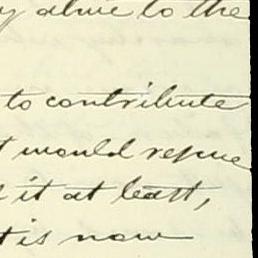 alive to the
to contribute
would rescue
it at least,
is now